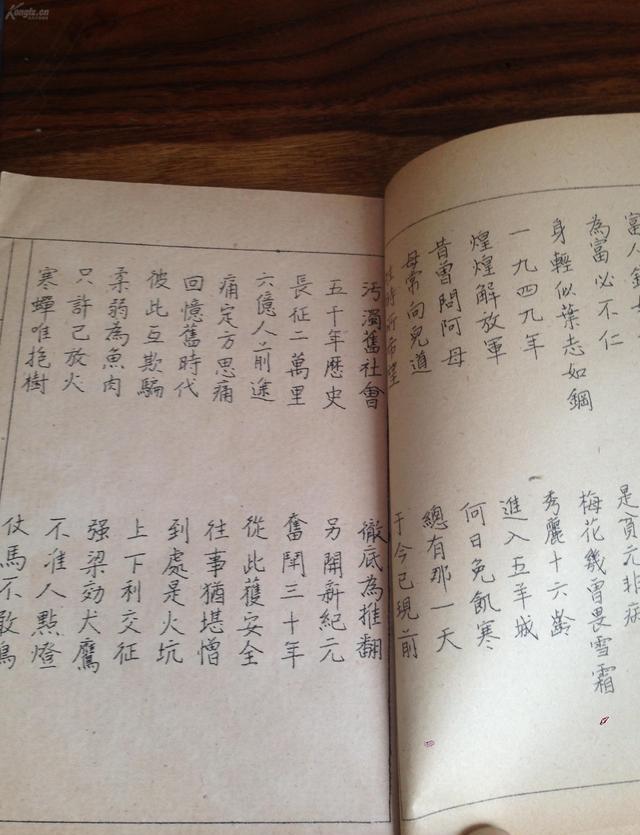 Kongfz.cn
富人
為富必不仁 是貧元非病
身輕似葉志如鋼 梅花幾曾畏雪霜
一九四九年 秀麗十六齡
煌煌解放軍 進入五羊城
昔曾問阿母 何日免飢寒
母常向兒道 總有那一天
時所希望 于今已現前
汚濁舊社會 徹底為推翻
五千年歷史 另開新紀元
長征二萬里 奮鬥三十年
六億人前途 從此獲安全
痛定方思痛 往事猶堪憎
回憶舊時代 到處是火坑
彼此互欺騙 上下利交征
柔弱為魚肉 强梁効犬鷹
只許己放火 不准人點燈
寒蟬唯抱樹 仗馬不敢鳴